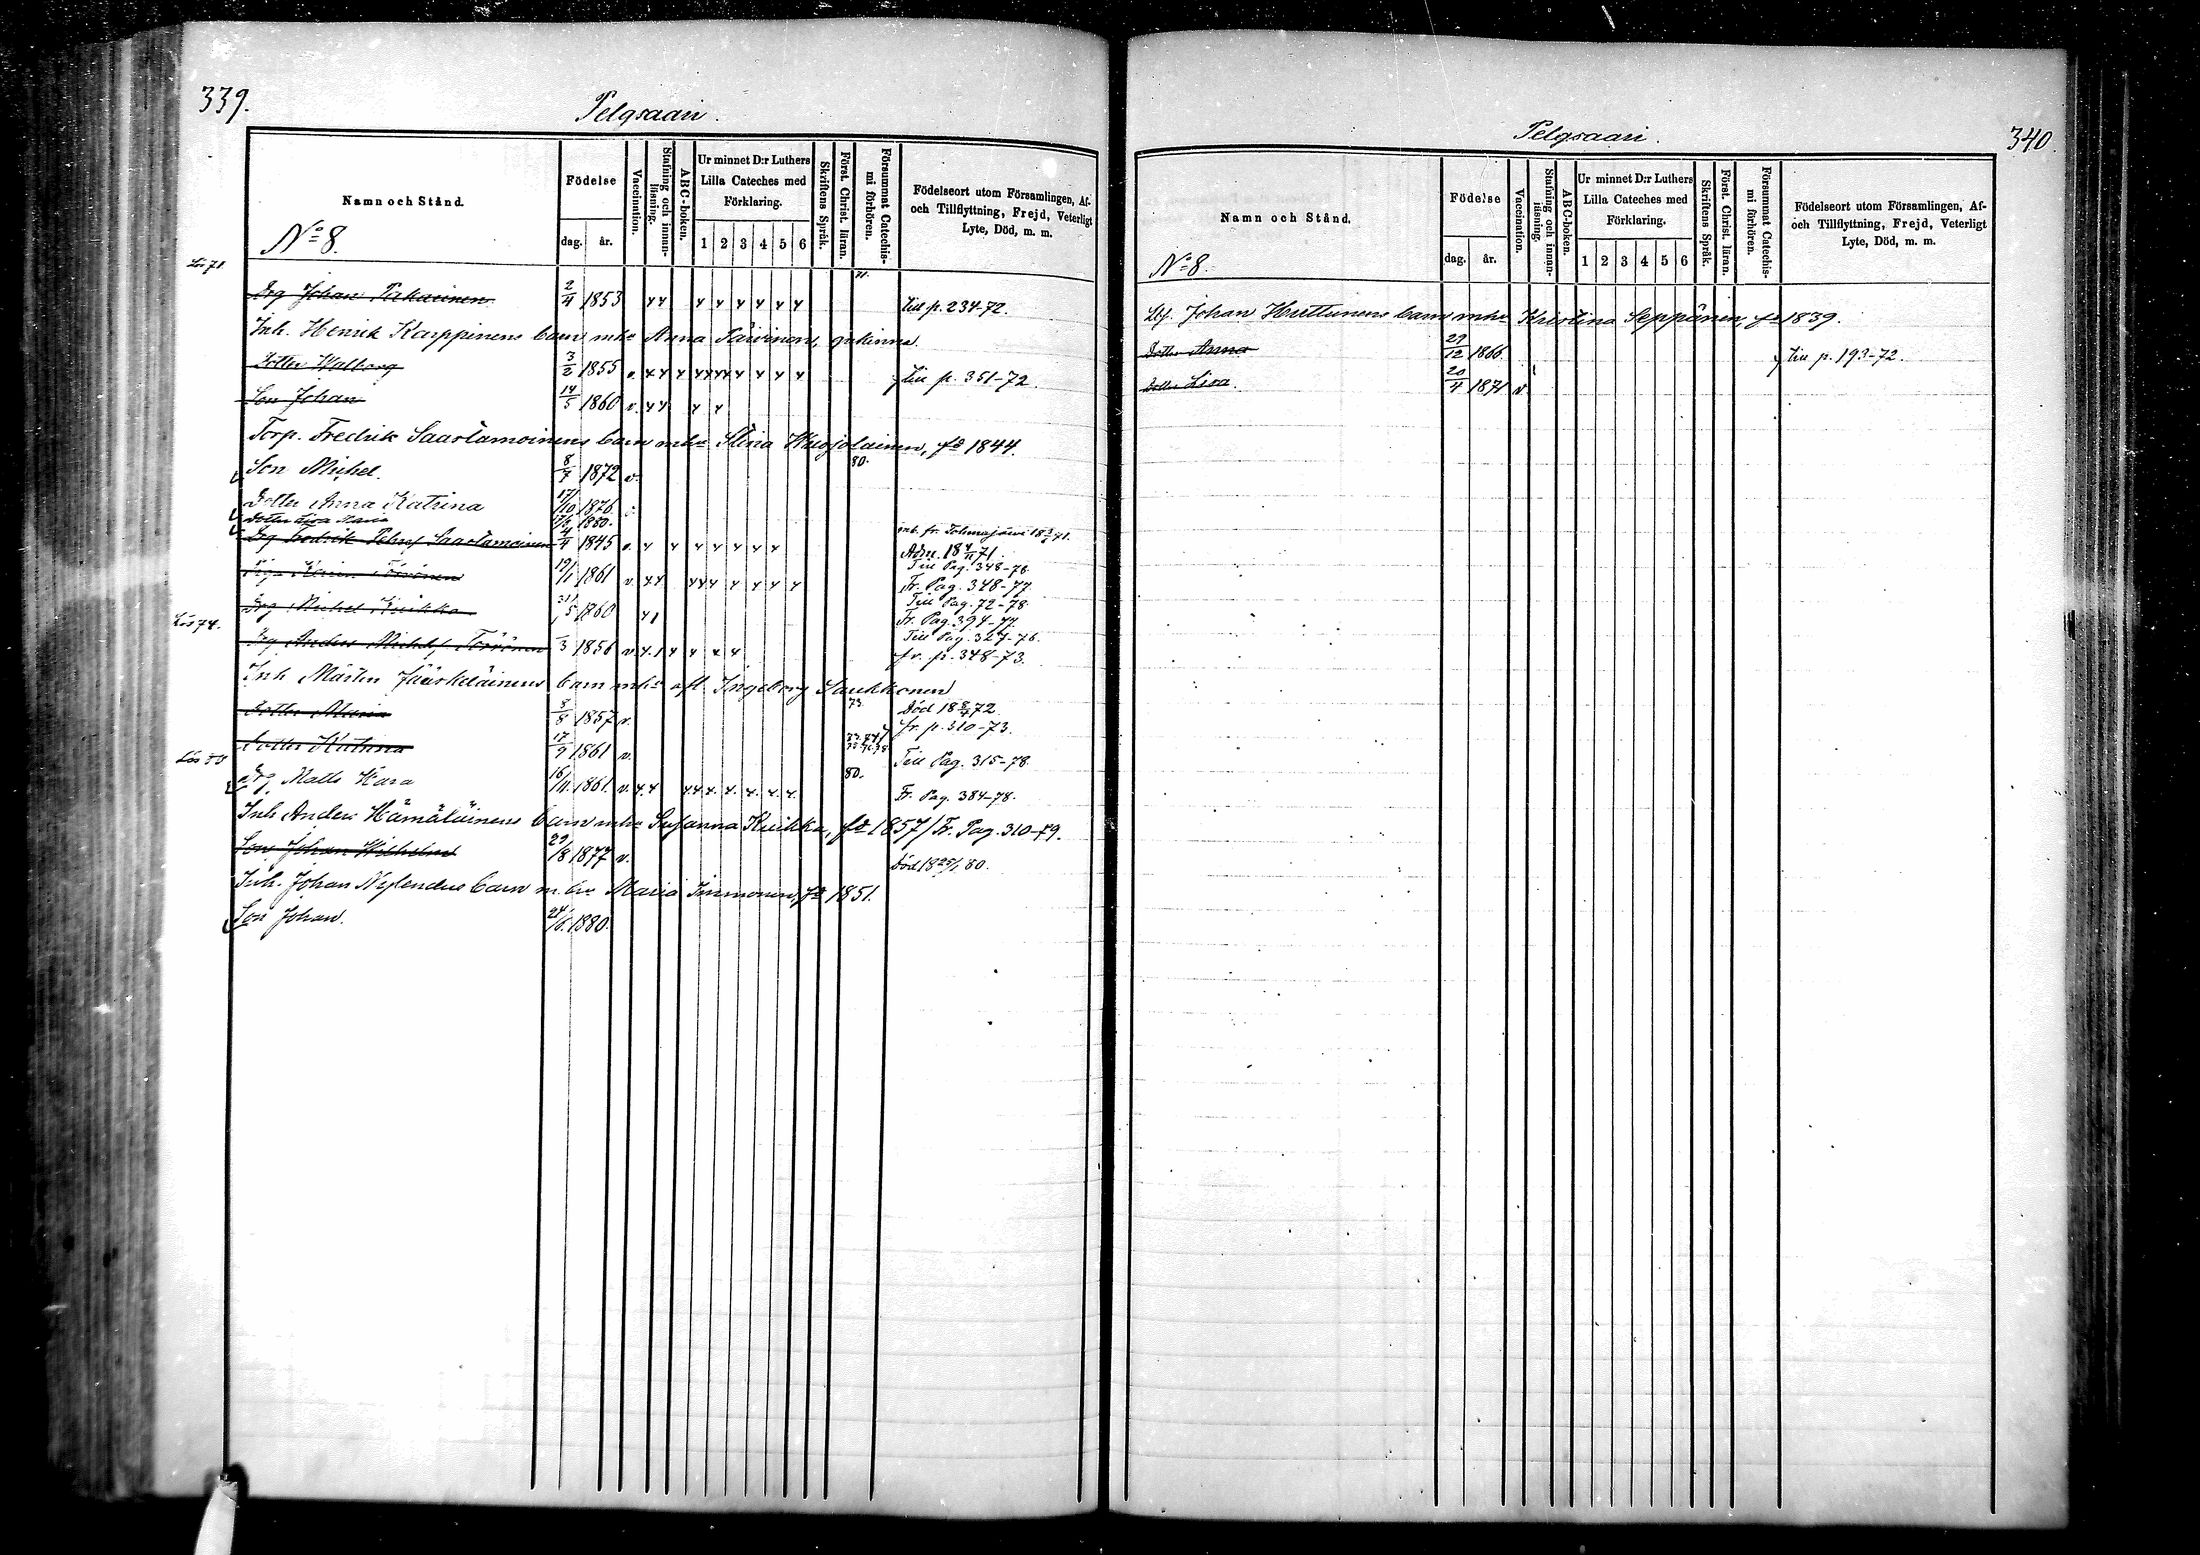 339.
Pelgsaari.
Namn och Stånd.
Födelse
dag. år.
Vaccination.
Stafning och innan-
läsning.
ABC-boken.
Ur minnet D:r Luthers
Lilla Cateches med
Förklaring.
1 2 3 4 5 6
Skriftens Språk.
Först. Christ. läran.
Försummat Catechis-
mi förhören.
Födelseort utom Församlingen, Af-
och Tillflyttning, Frejd, Veterligt
Lyte, Död, m. m.
No 8.
Lös 71.
71.
Drg Johan Pakarinen 2/4 1853 till p. 234-72.
Inh. Henrik Karppinens barn mhu Anna Päivinen, qvinna
Dotter Walborg 3/2 1855 v. till p. 351-72.
Son Johan 14/5 1860 v.
Torp. Fredrik Saastamoinens barn mhu Stina Kuojolainen, fd 1844.
Son Michel. 8/7 1872 v. 80.
Dotter Anna Katrina 17/10 1876
Dotter Lisa Maria 17/2 1880.
Drg Fredrik Pehrss Saastamoinen 4/4 1845 v. inb. fr. Tohmajärvi
Adm. 18 4/11 71.
Till Pag. 348-76.
Piga Karin Törrönen 19/1 1861 v. Fr. Pag. 348-77.
Till Pag. 72-78.
Drg Michel Kuikka 31/5 1860 Fr. Pag. 394-77.
Till Pag. 327-76.
Lös 74.
Drg Anders Michelss Törrönen /3 1856 v. fr. p. 348-73.
Inh Mårten Jääskeläinens barn mhu afl. Ingeborg Saukkonen
73.
Dotter Maria 8/8 1857 v. Död 18 8/4 72.
fr. p. 310-73.
Dotter Katrina 17/9 1861 v. Till Pag. 315-78.
80.
Drg. Matts Hara 16/11 1861. v. Fr. Pag. 384-78.
Inh Anders Hämäläinens barn mhu Susanna Kuikka, fd 1857/Fr. Pag. 310-79.
Son Johan Wilhelm 29/8 1877 v. Död 18 25/1 80.
Inh. Johan Nylenders barn mhu Maria Immonen, fd 1851.
Son Johan. 24/6 1880.
340.
Pelgsaari.
Namn och Stånd.
Födelse
dag. år.
Vaccination.
Stafning och innan-
läsning.
ABC-boken.
Ur minnet D:r Luthers
Lilla Cateches med
Förklaring.
1 2 3 4 5 6
Skriftens Språk.
Först. Christ. läran.
Försummat Catechis-
mi förhören.
Födelseort utom Församlingen, Af-
och Tillflyttning, Frejd, Veterligt
Lyte, Död, m. m.
No 8.
Johan Huttunens barn mhu Kristina Seppänen, fd 1839.
Dotter Anna 29/12 1866. till p. 193-72.
Dotter Lisa. 20/4 1871 v.